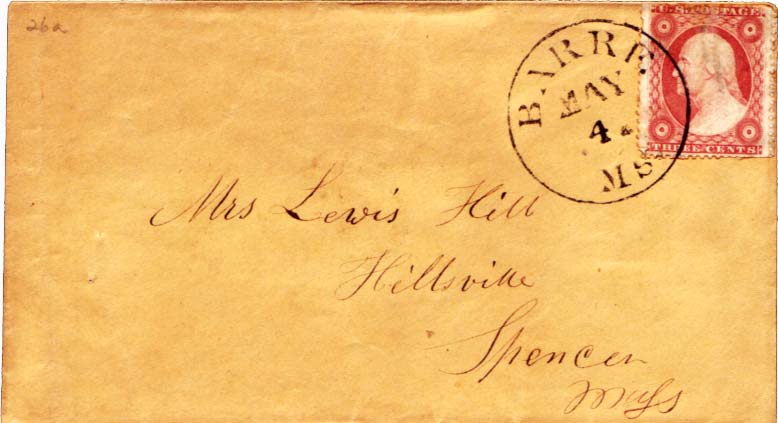 26a
U.S. POSTAGE
THREE CENTS
BARRE
MAY
4
MS
Mrs Lewis Hill
Hillsville
Spencer
Mass